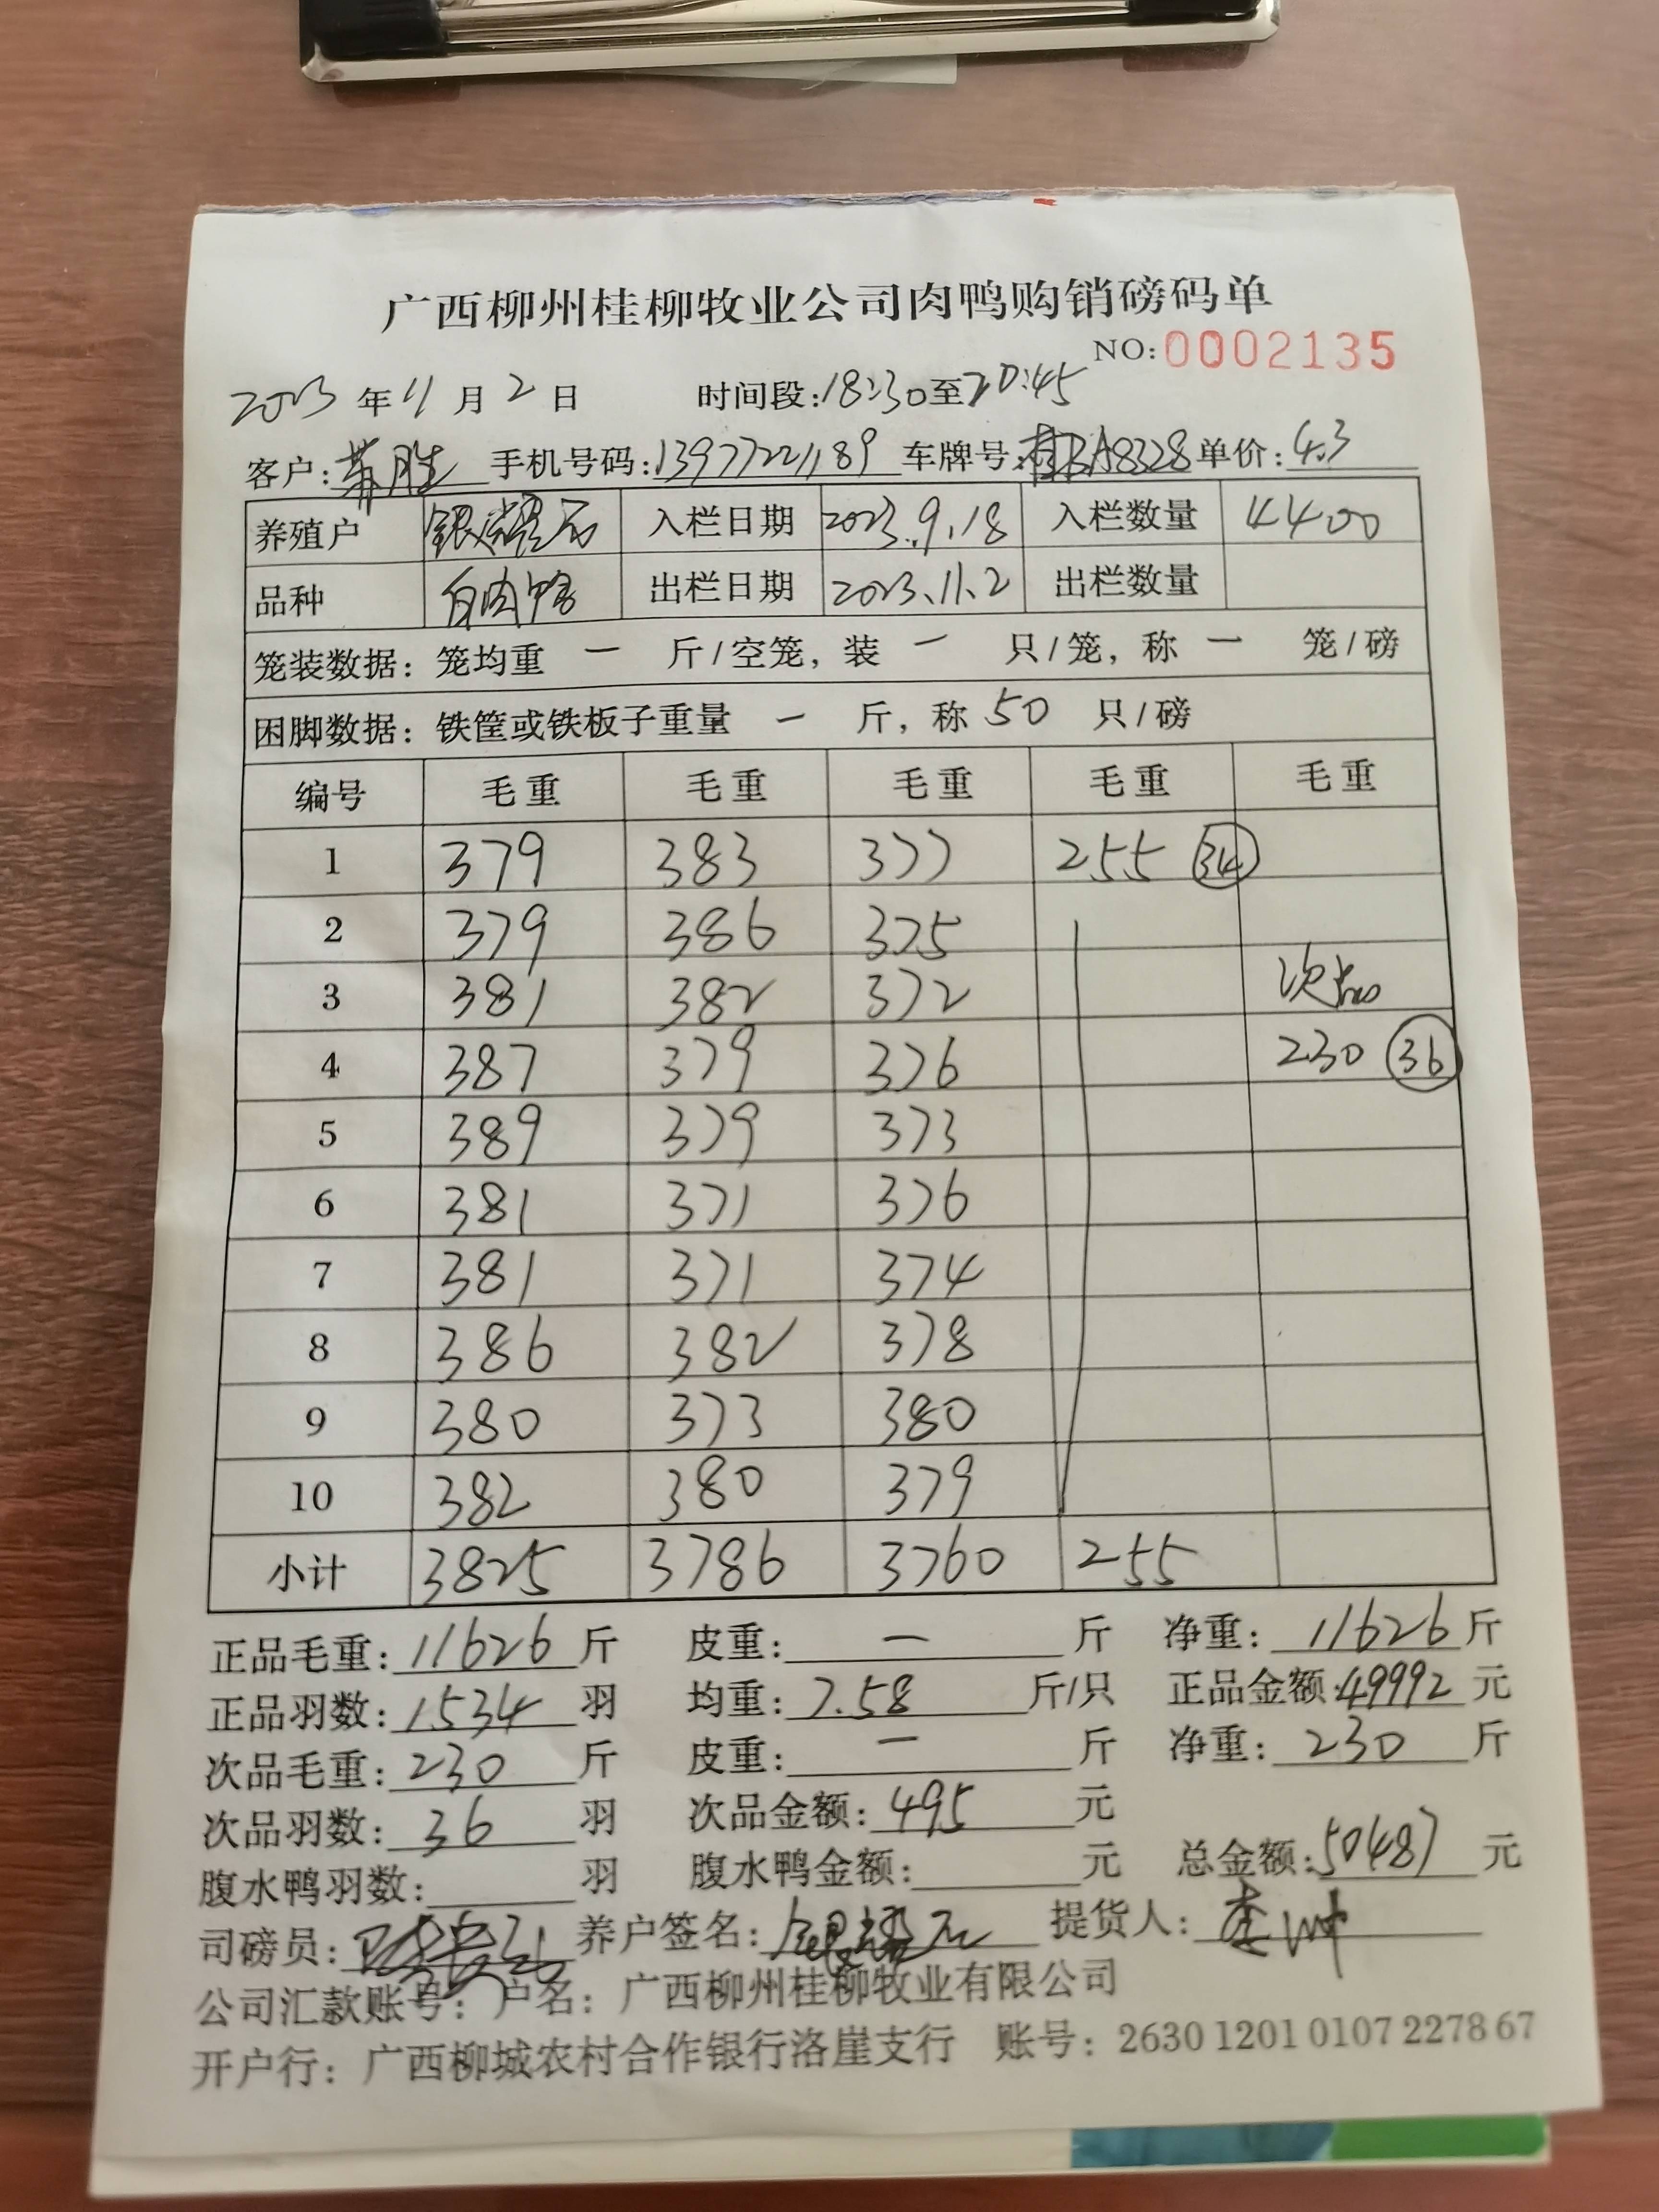 广西柳州桂柳牧业公司肉鸭购销磅码单
NO:0002135
2023 年 11 月 2 日 时间段:18:30至20:45
客户: 手机号码:13977221189 车牌号:桂BA8328 单价:4.3
养殖户 入栏日期 2023.9.18 入栏数量 4400
品种 白肉鸭 出栏日期 2023.11.2 出栏数量
笼装数据：笼均重 一 斤/空笼，装 一 只/笼，称 一 笼/磅
困脚数据：铁筐或铁板子重量 一 斤，称 50 只/磅
编号 毛重 毛重 毛重 毛重 毛重
1 379 383 377 255 34
2 379 386 375
3 381 382 372 次品
4 387 379 376 230 36
5 389 379 373
6 381 371 376
7 381 371 374
8 386 382 378
9 380 373 380
10 382 380 379
小计 3825 3786 3760 255
正品毛重:11626 斤 皮重:一 斤 净重:11626 斤
正品羽数:1534 羽 均重:7.58 斤/只 正品金额:49992 元
次品毛重:230 斤 皮重:一 斤 净重:230 斤
次品羽数:36 羽 次品金额:495 元
腹水鸭羽数: 羽 腹水鸭金额: 元 总金额:50487 元
司磅员: 养户签名: 提货人:
公司汇款账号：户名：广西柳州桂柳牧业有限公司
开户行：广西柳城农村合作银行洛崖支行 账号：2630 1201 0107 2278 67